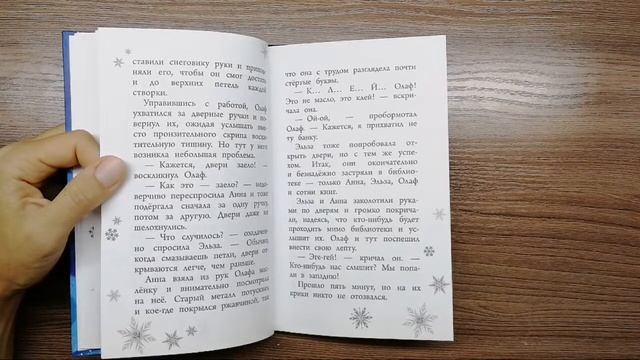 ставили снеговику руки и припод-
няли его, чтобы он смог достать
и до верхних петель каждой
створки.
Управившись с работой, Олаф
ухватился за дверные ручки и по-
вернул их, ожидая услышать вме-
сто пронзительного скрипа восхи-
тительную тишину. Но тут у него
возникла небольшая проблема.
— Кажется, двери заело! —
воскликнул Олаф.
— Как это — заело? — недо-
верчиво переспросила Анна и тоже
подёргала сначала за одну ручку,
потом за другую. Двери даже не
шелохнулись.
— Что случилось? — озадачен-
но спросила Эльза. — Обычно,
когда смазываешь петли, двери от-
крываются легче, чем раньше.
Анна взяла из рук Олафа мас-
лёнку и внимательно посмотрела
на неё. Старый металл потускнел
и кое-где покрылся ржавчиной, так
что она с трудом разглядела почти
стёртые буквы.
— К... Л... Е... Й... Олаф!
Это не масло, это клей! — вскри-
чала она.
— Ой-ой, — пробормотал
Олаф. — Кажется, я прихватил не
ту банку.
Эльза тоже попробовала от-
крыть двери, но с тем же успе-
хом. Итак, они окончательно
и безнадёжно застряли в библио-
теке — только Анна, Эльза, Олаф
и сотни книг.
Эльза и Анна заколотили рука-
ми по дверям и громко покрича-
ли, надеясь, что кто-нибудь будет
проходить мимо библиотеки и ус-
лышит их. Олаф и тут поспешил
внести свою лепту.
— Эге-гей! — кричал он. —
Кто-нибудь нас слышит? Мы попа-
ли в западню!
Прошло пять минут, но на их
крики никто не отозвался.